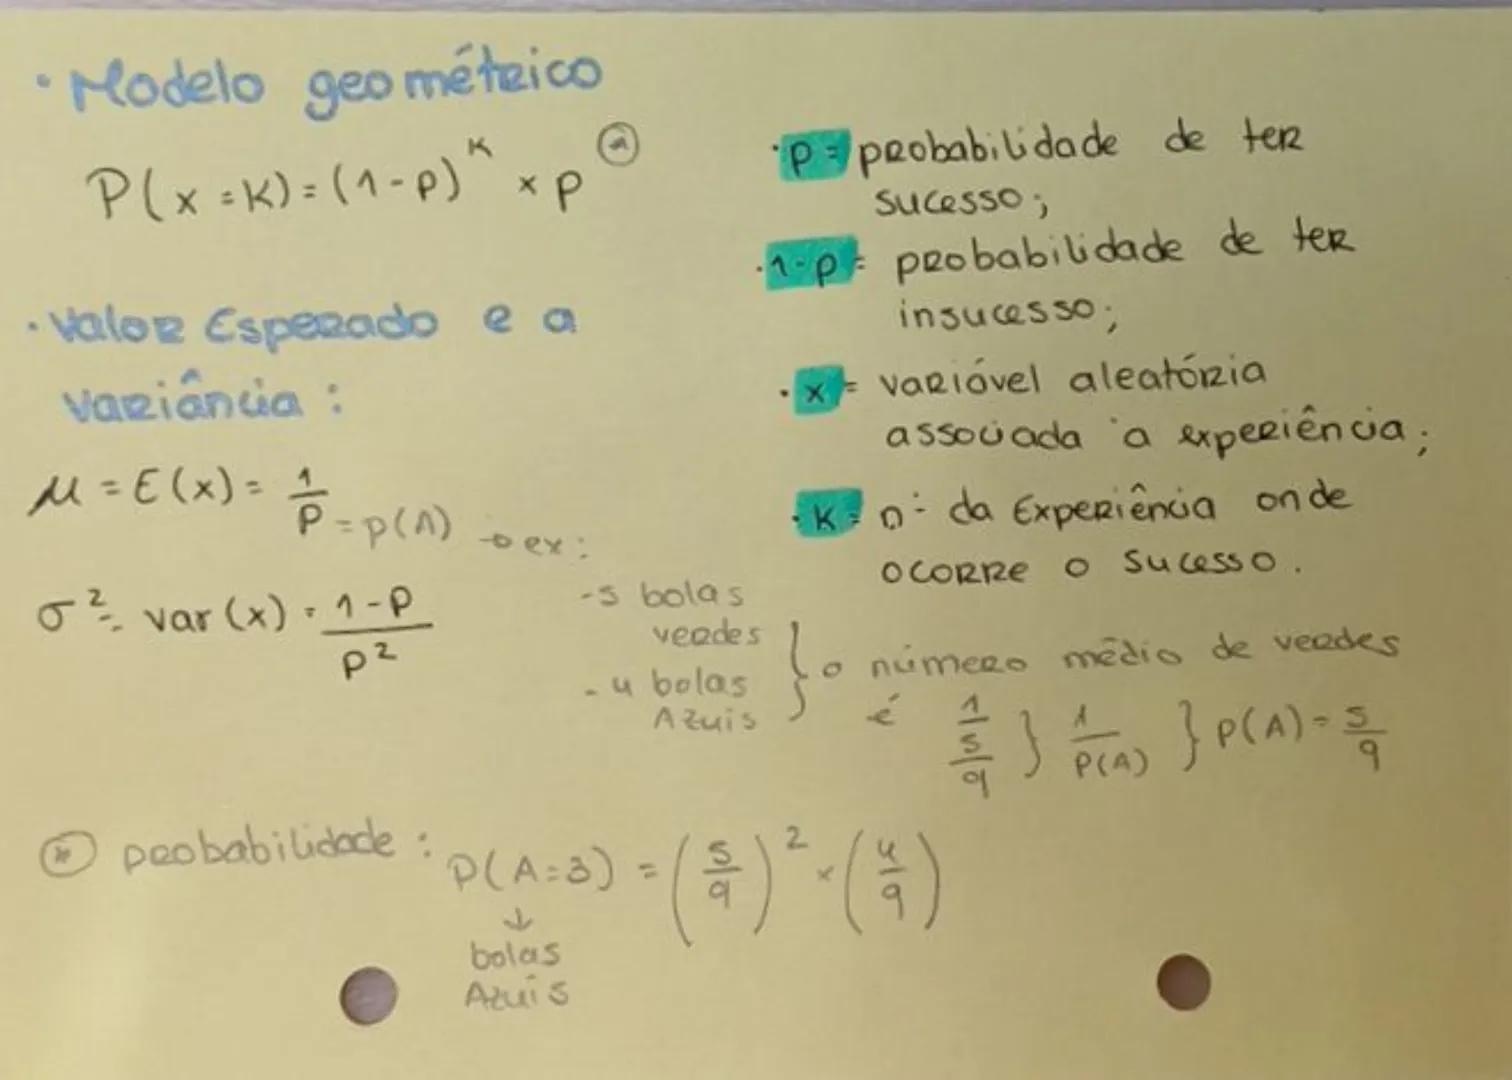 • Modelo geométrico
P(x=K)=(1-p)^K × p
• Valor Esperado e a
variância :
μ = E(x) = 1/P = p(A) → ex:
σ² = var(x) = 1-P/P²
• p = probabilidade de ter
sucesso;
• 1-p = probabilidade de ter
insucesso;
• x = variável aleatória
associada à experiência;
• K = nº da Experiência onde
ocorre o sucesso.
- 5 bolas
verdes
- 4 bolas
Azuis
} o número médio de verdes
é 1/(5/9) } 1/P(A) } P(A) = 5/9
(*) probabilidade : P(A=3) = (5/9)² × (4/9)
↓
bolas
Azuis